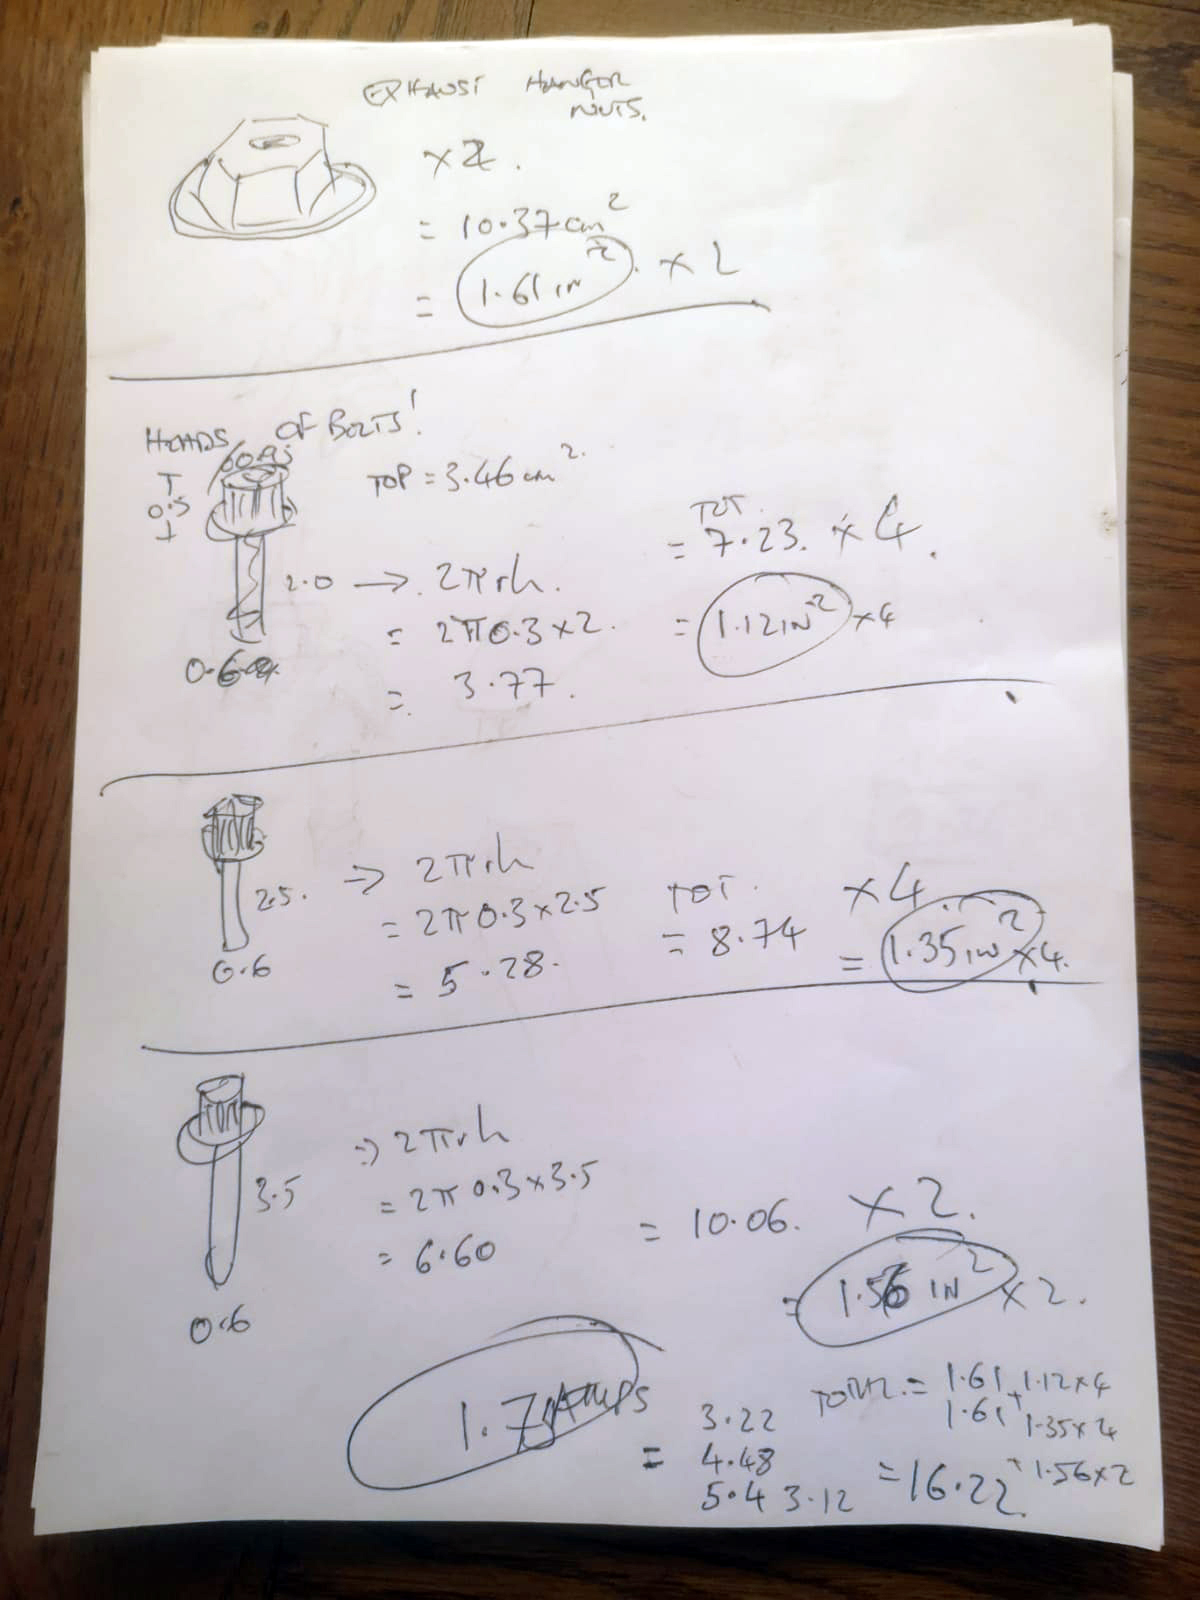 EXHAUST HANGER
NUTS.
×2.
= 10.37 cm²
= 1.61 IN² × 2
HEADS OF BOLTS!
T
0.5
⊥
TOP = 3.46 cm².
2.0 → 2πrh.
= 2π0.3×2.
= 3.77.
0.6
TOT.
= 7.23. × 4.
= 1.12 IN² ×4
2.5. ⇒ 2πrh
= 2π0.3×2.5
= 5.28.
0.6
TOT.
= 8.74
×4.
= 1.35 IN² ×4.
3.5 ⇒ 2πrh
= 2π0.3×3.5
= 6.60
0.6
= 10.06. ×2.
= 1.56 IN² ×2.
1.7 AMPS
TOTAL = 1.61 + 1.12×4
1.61 + 1.35×4
+ 1.56×2
= 3.22
4.48
5.4 3.12
= 16.22